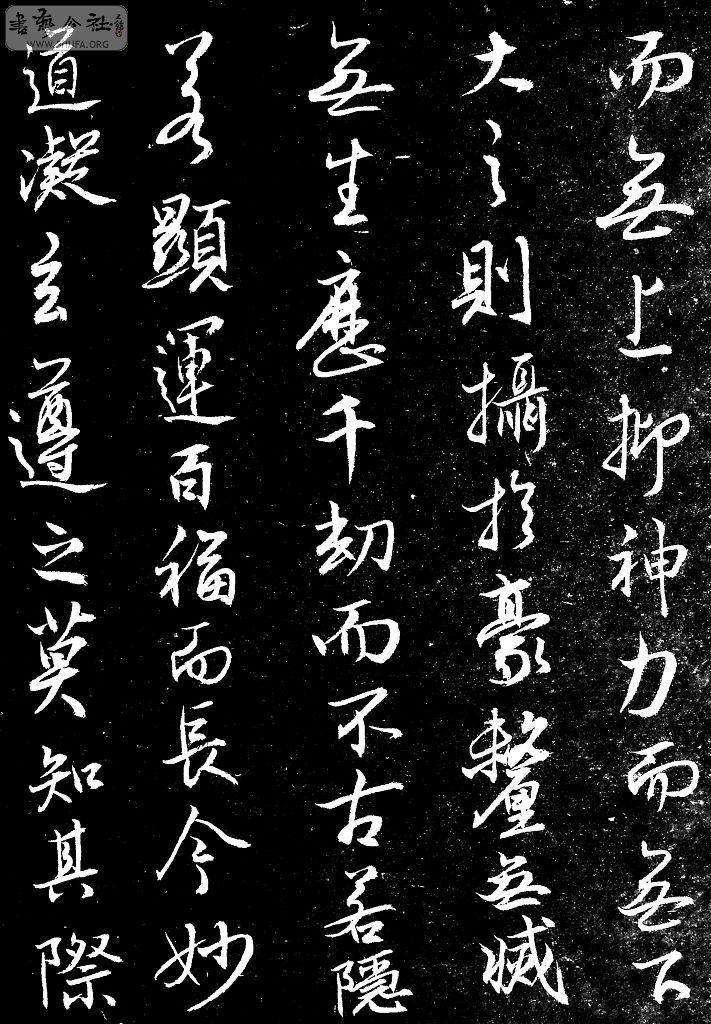 書藝公社
WWW.SHUFA.ORG
而無上抑神力而無下
大之則攝於豪釐無滅
無生歷千劫而不古若隱
若顯運百福而長今妙
道凝玄遵之莫知其際